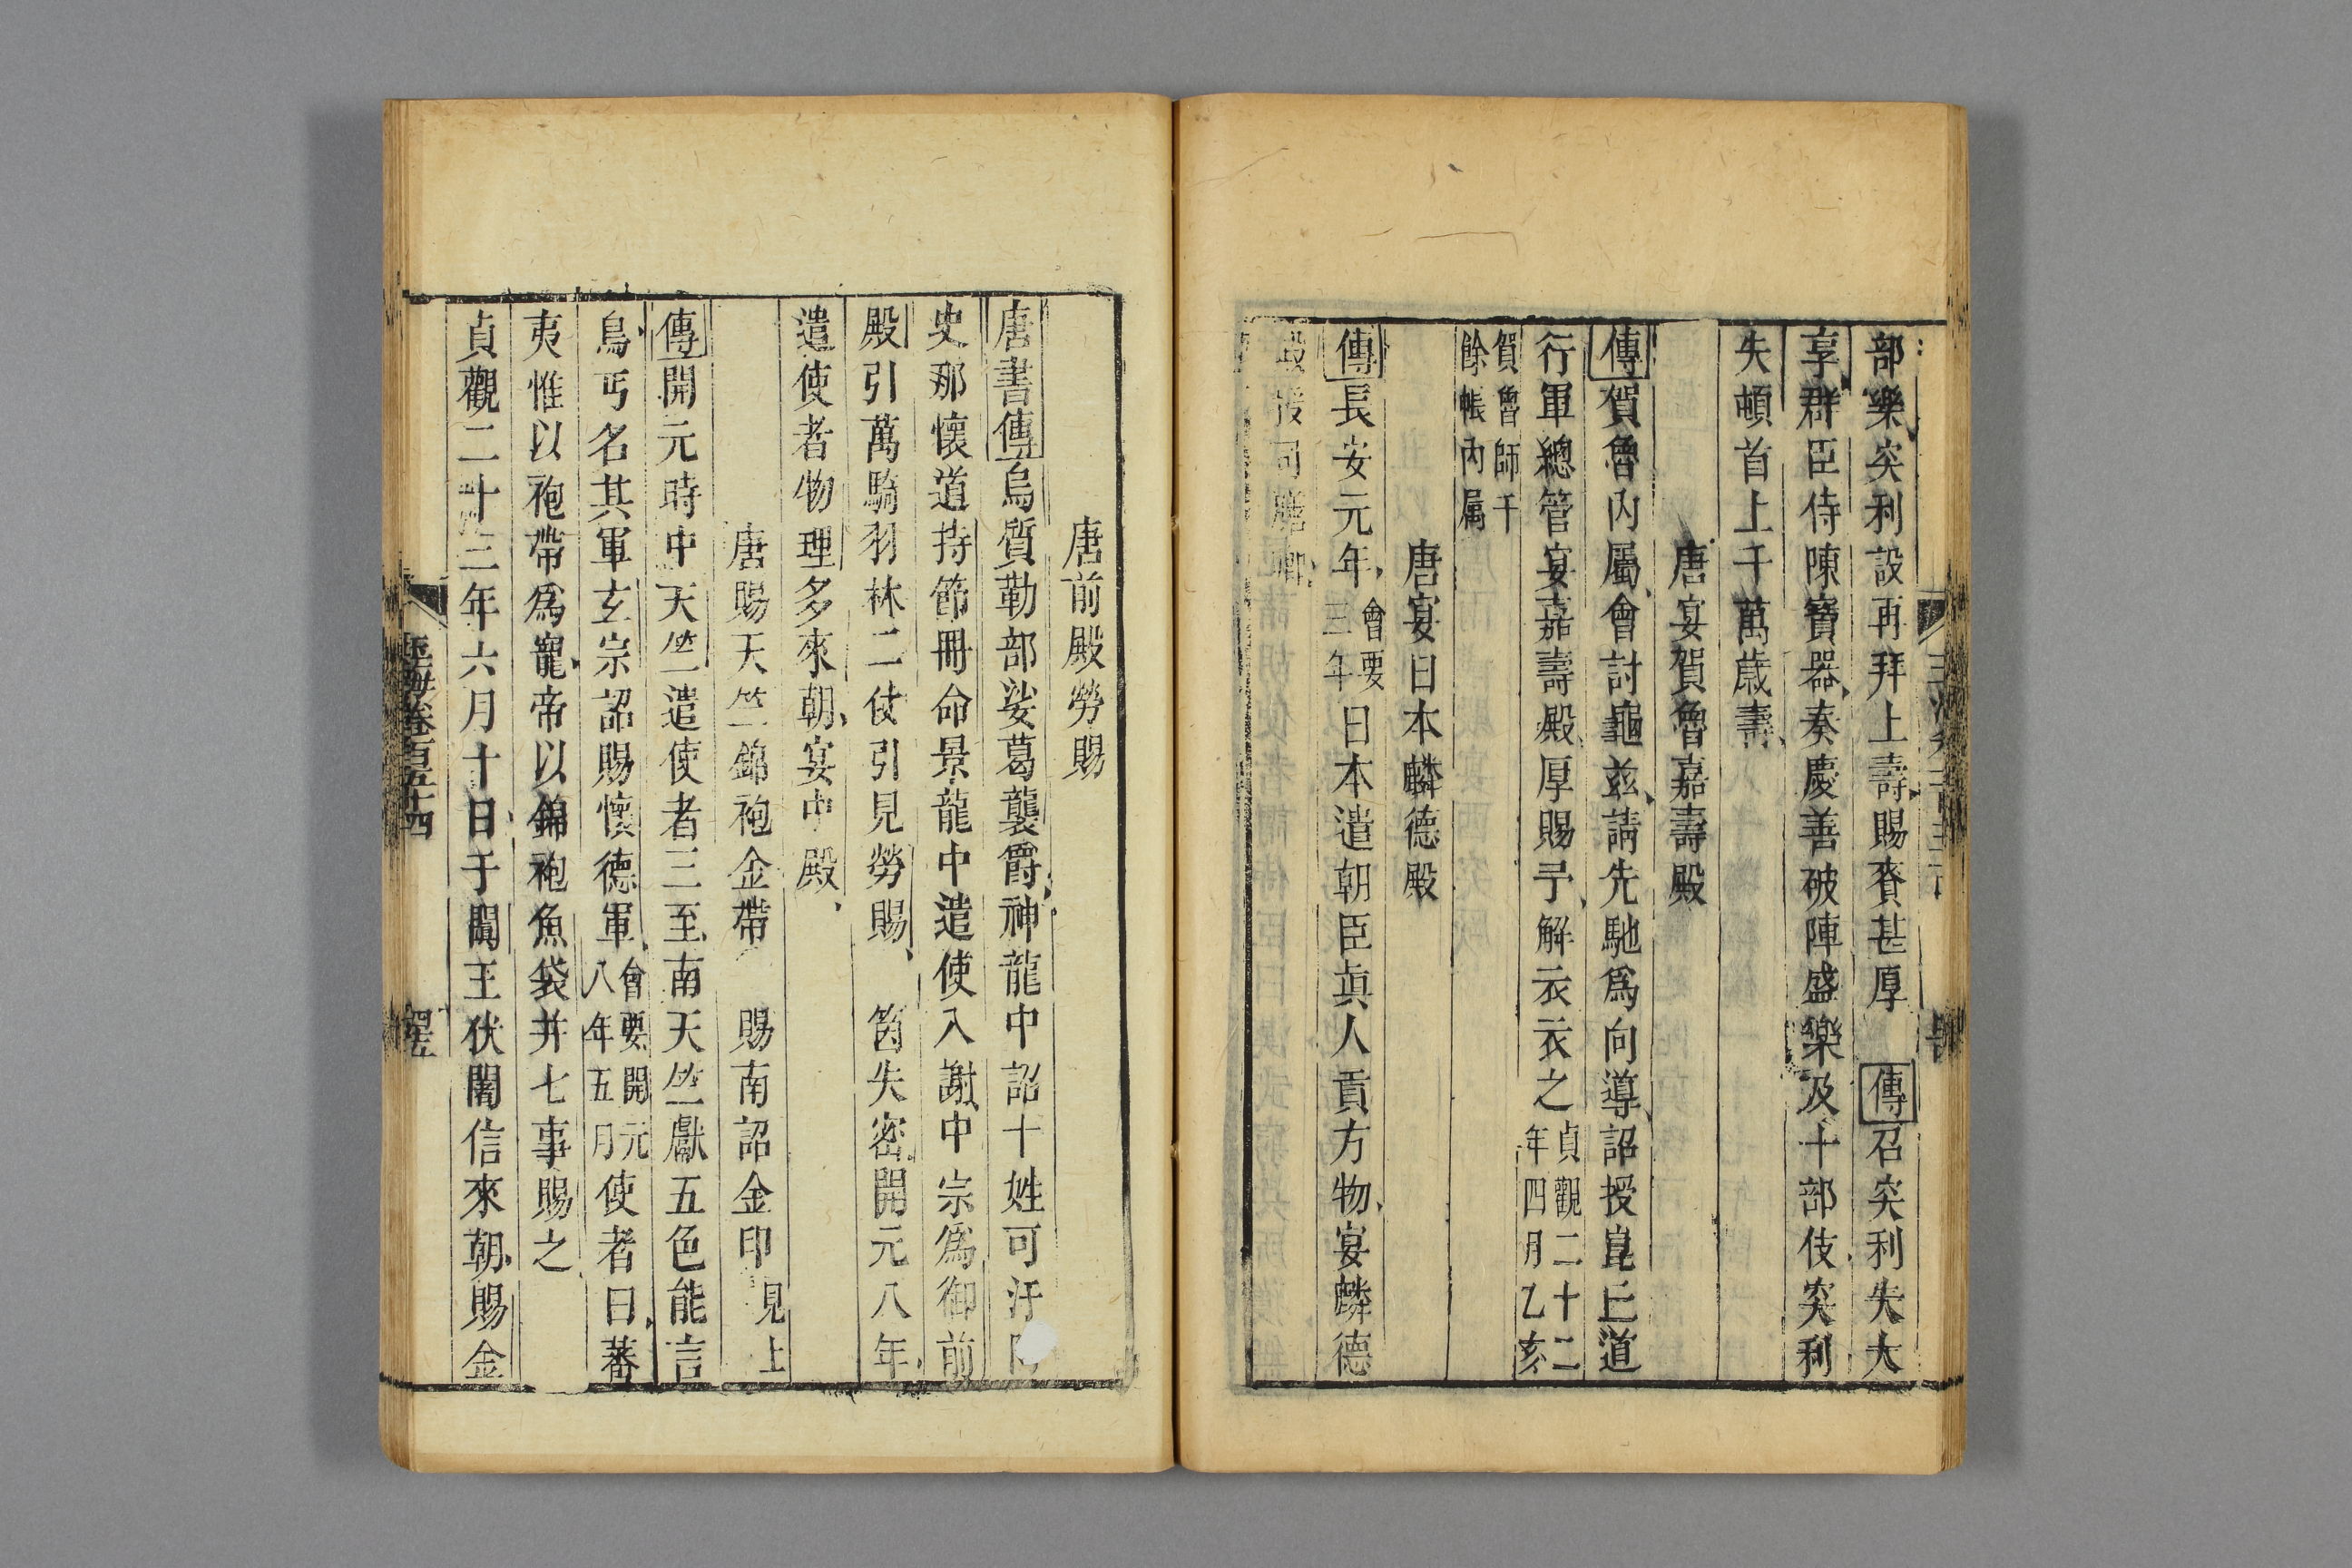 部樂突利設再拜上壽賜賚甚厚　傳召突利失大
享群臣侍陳寶器奏慶善破陣盛樂及十部伎突利
失頓首上千萬歲壽
唐宴賀魯嘉壽殿
傳賀魯內屬會討龜玆請先馳爲向導詔授崑丘道
行軍總管宴嘉壽殿厚賜予解衣衣之貞觀二十二年四月乙亥
賀魯師千餘帳內属
唐宴日本麟德殿
傳長安元年會要三年日本遣朝臣眞人貢方物宴麟德
殿授司膳卿
唐前殿勞賜
唐書傳烏質勒部娑葛襲爵神龍中詔十姓可汗阿
史那懷道持節冊命景龍中遣使入謝中宗爲御前
殿引萬騎羽林二仗引見勞賜　箇失密開元八年
遣使者物理多來朝宴中殿
唐賜天竺錦袍金帶　賜南詔金印見上
傳開元時中天竺遣使者三至南天竺獻五色能言
鳥丐名其軍玄宗詔賜懷德軍會要開元八年五月使者曰蕃
夷惟以袍帶爲寵帝以錦袍魚袋并七事賜之
貞觀二十三年六月十日于闐王伏闍信來朝賜金
玉海卷百五十四